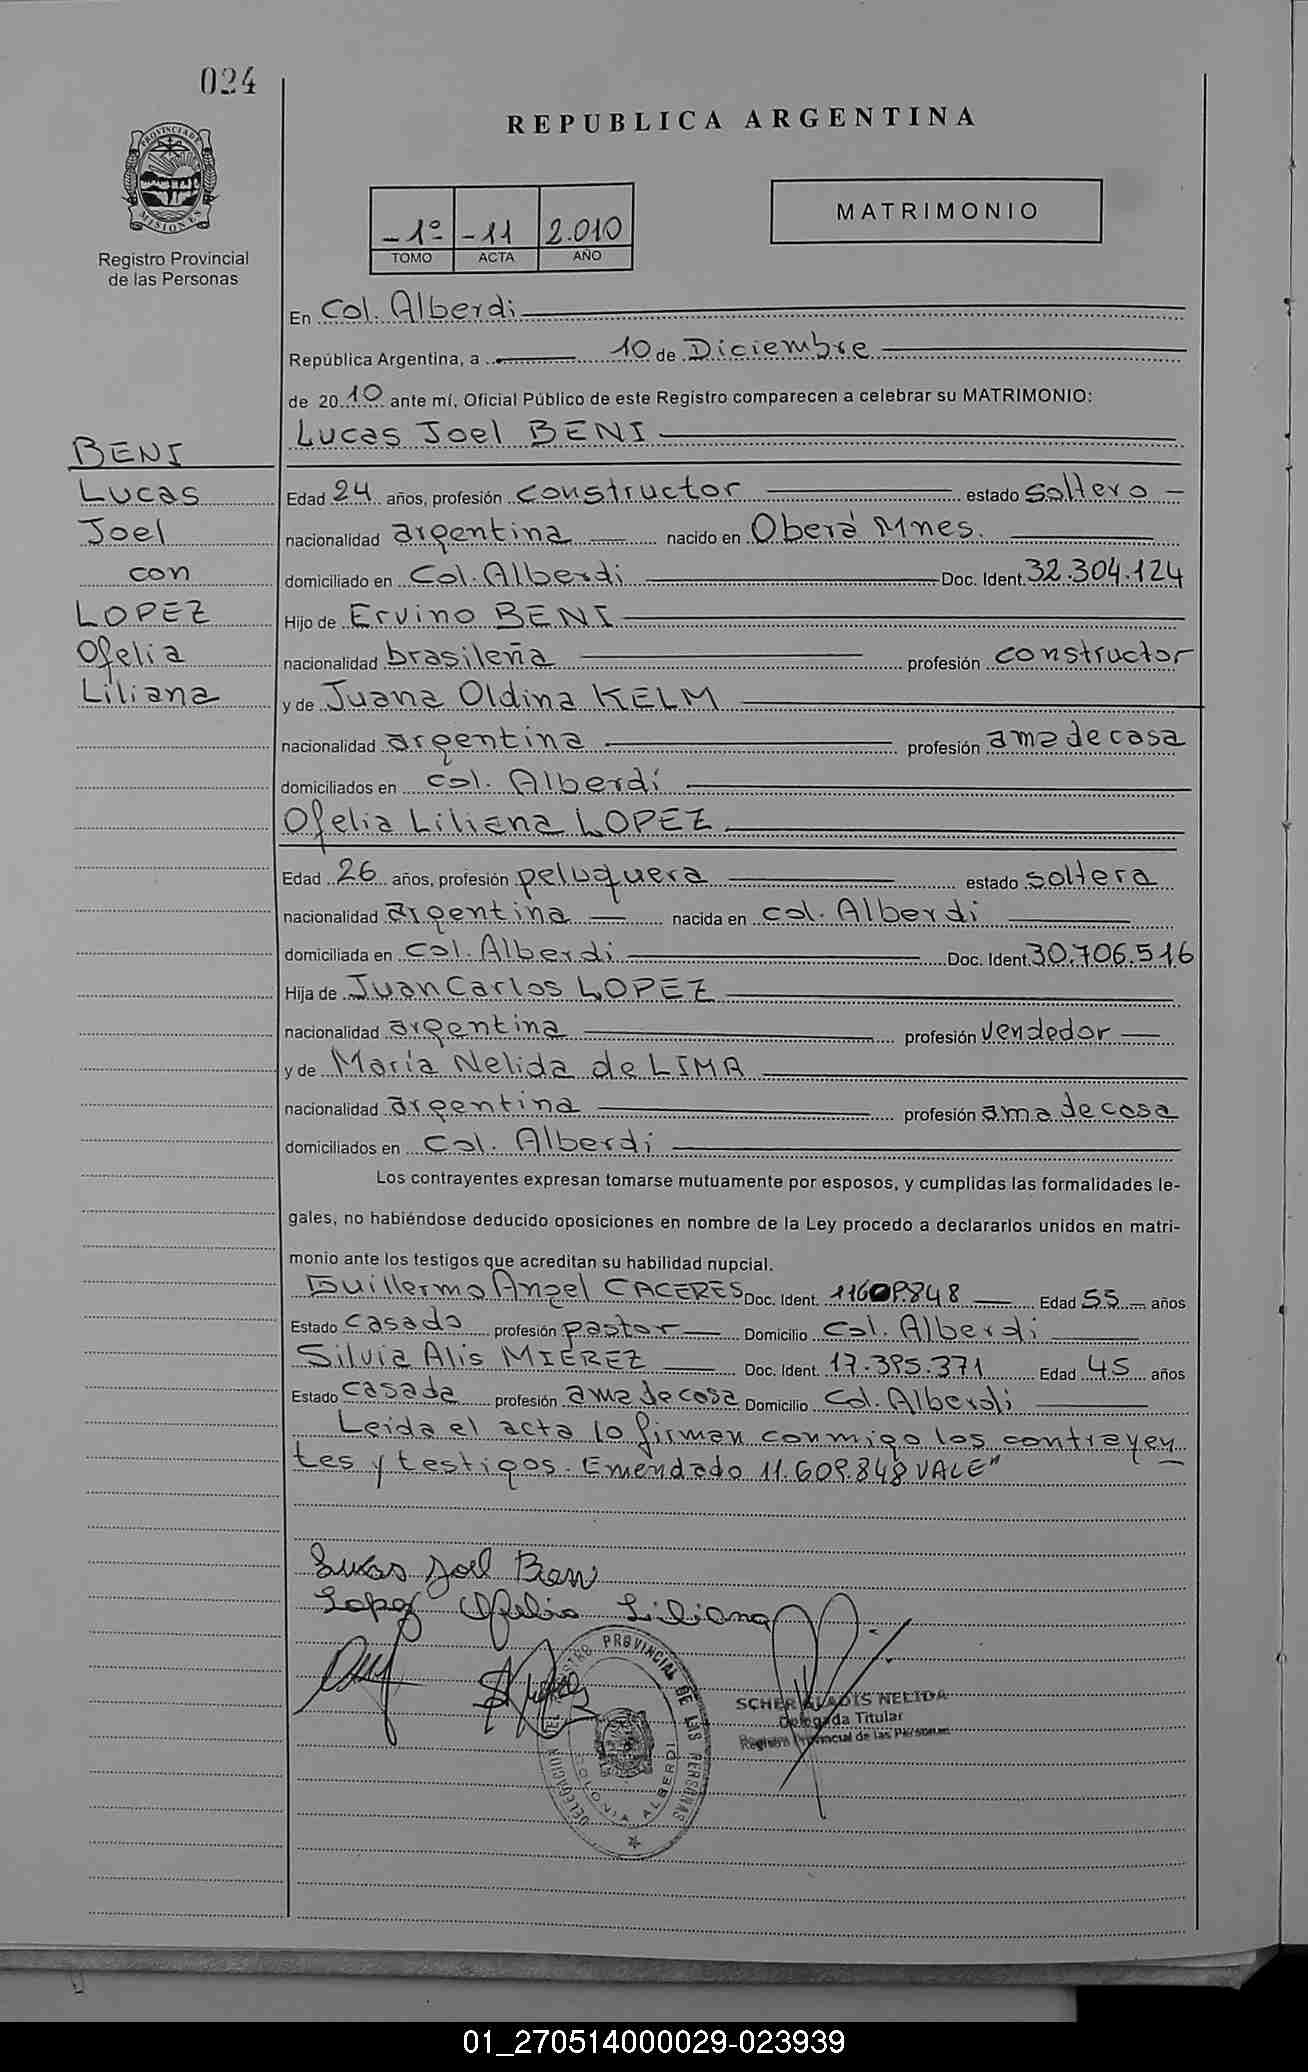 024
REPUBLICA ARGENTINA
PROVINCIA DE
MISIONES
Registro Provincial
de las Personas
MATRIMONIO
-1º- -11 2.010
TOMO ACTA AÑO
En Col. Alberdi
República Argentina, a 10 de Diciembre
de 2010 ante mí, Oficial Público de este Registro comparecen a celebrar su MATRIMONIO:
Lucas Joel BENI
BENI
Lucas
Joel
con
LOPEZ
Ofelia
Liliana
Edad 24 años, profesión constructor estado soltero -
nacionalidad argentina nacido en Oberá Mnes.
domiciliado en Col. Alberdi Doc. Ident. 32.304.124
Hijo de Ervino BENI
nacionalidad brasileña profesión constructor
y de Juana Oldina KELM
nacionalidad argentina profesión ama de casa
domiciliados en col. Alberdi
Ofelia Liliana LOPEZ
Edad 26 años, profesión peluquera estado soltera
nacionalidad argentina nacida en col. Alberdi
domiciliada en Col. Alberdi Doc. Ident. 30.706.516
Hija de Juan Carlos LOPEZ
nacionalidad argentina profesión vendedor
y de María Nelida de LIMA
nacionalidad argentina profesión ama de casa
domiciliados en Col. Alberdi
Los contrayentes expresan tomarse mutuamente por esposos, y cumplidas las formalidades le-
gales, no habiéndose deducido oposiciones en nombre de la Ley procedo a declararlos unidos en matri-
monio ante los testigos que acreditan su habilidad nupcial.
Guillermo Angel CACERES Doc. Ident. 11609848 Edad 55 años
Estado casado profesión pastor Domicilio Col. Alberdi
Silvia Alis MIEREZ Doc. Ident. 17.395.371 Edad 45 años
Estado casada profesión ama de casa Domicilio Col. Alberdi
Leida el acta lo firman conmigo los contrayen
tes y testigos. Emendado 11.609.848 VALE"
Lucas Joel Beni
Lopez Ofelia Liliana
REGISTRO PROVINCIAL DE LAS PERSONAS
DELEGACION
COLONIA ALBERDI
SCHER GLADIS NELIDA
Delegada Titular
Registro Provincial de las Personas
01_270514000029-023939